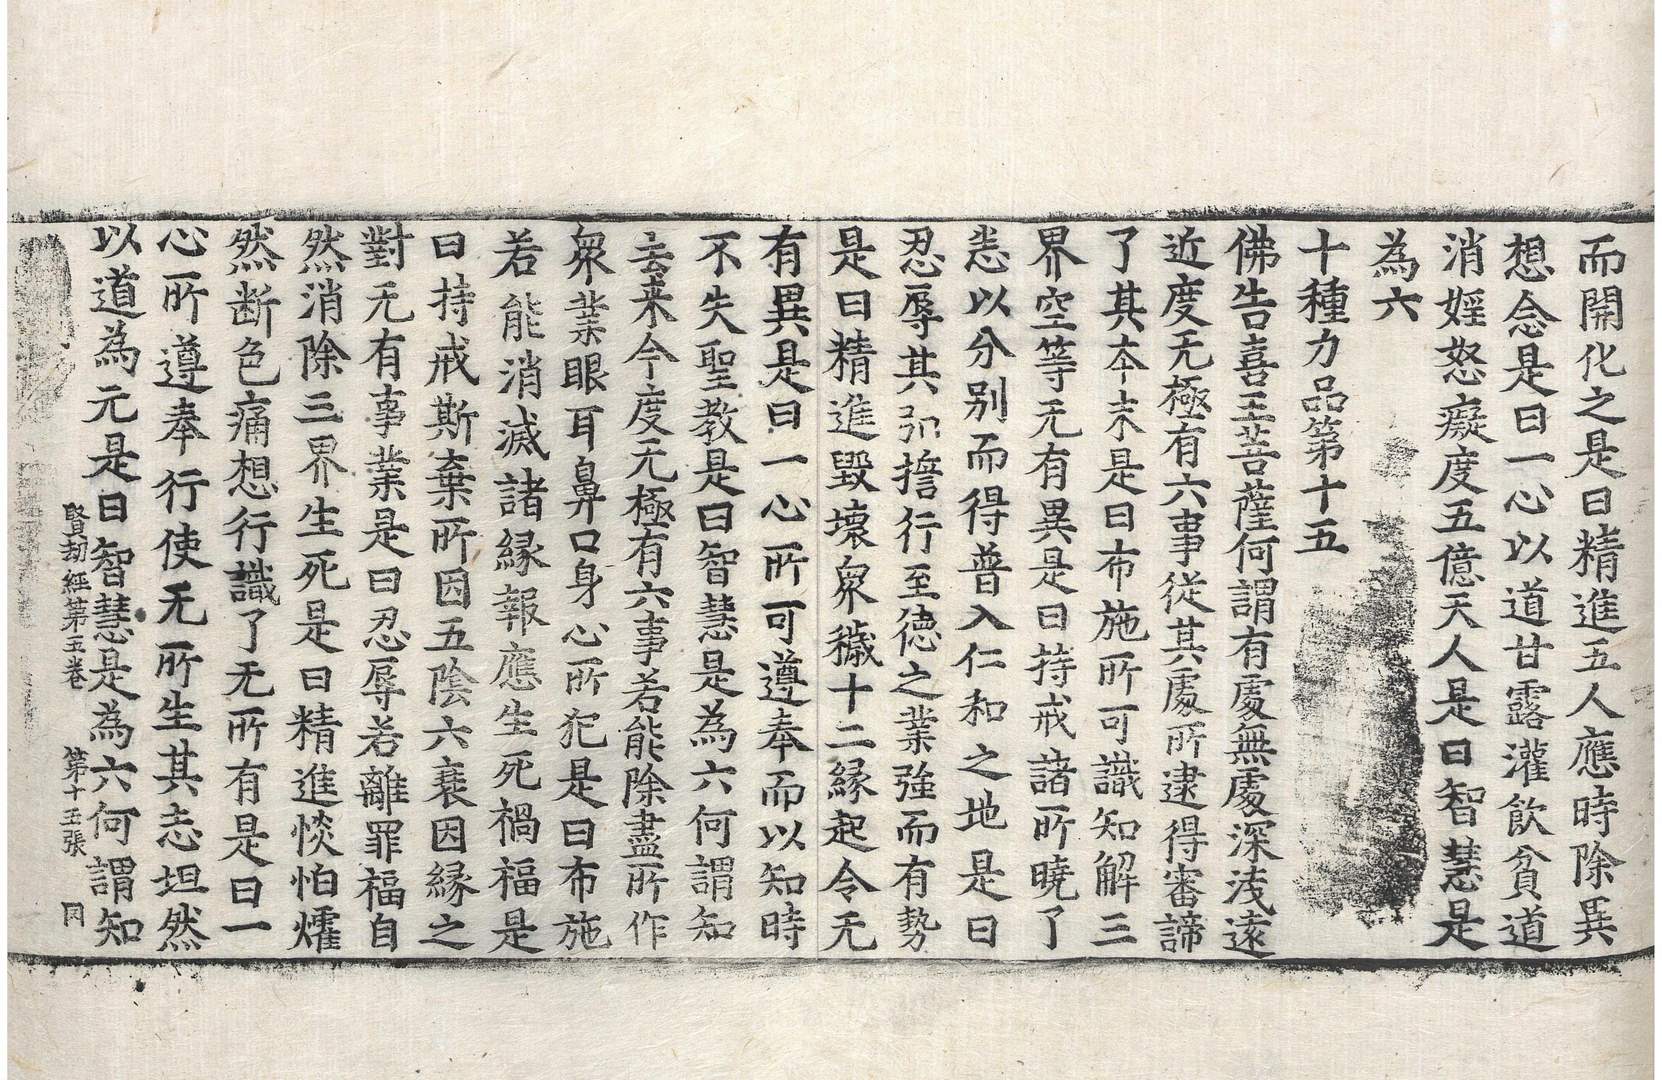 而開化之是曰精進五人應時除異
想念是曰一心以道甘露灌飲貧道
消婬怒癡度五億天人是曰智慧是
為六
十種力品第十五
佛告喜王菩薩何謂有處無處深浅遠
近度无極有六事從其處所逮得審諦
了其夲末是曰布施所可識知解三
界空等无有異是曰持戒諸所曉了
恙以分別而得普入仁和之地是曰
忍辱其弘擔行至德之業強而有勢
是曰精進毀壞衆穢十二緣起令无
有異是曰一心所可遵奉而以知時
不失聖教是曰智慧是為六何謂知
去来今度无極有六事若能除盡所作
衆業眼耳鼻口身心所犯是曰布施
若能消滅諸緣報應生死禍福是
曰持戒斯棄所因五陰六衰因緣之
對无有事業是曰忍辱若離罪福自
然消除三界生死是曰精進惔怕燿
然断色痛想行識了无所有是曰一
心所遵奉行使无所生其志坦然
以道為元是曰智慧是為六何謂知
賢劫經第五卷 第十五張 同